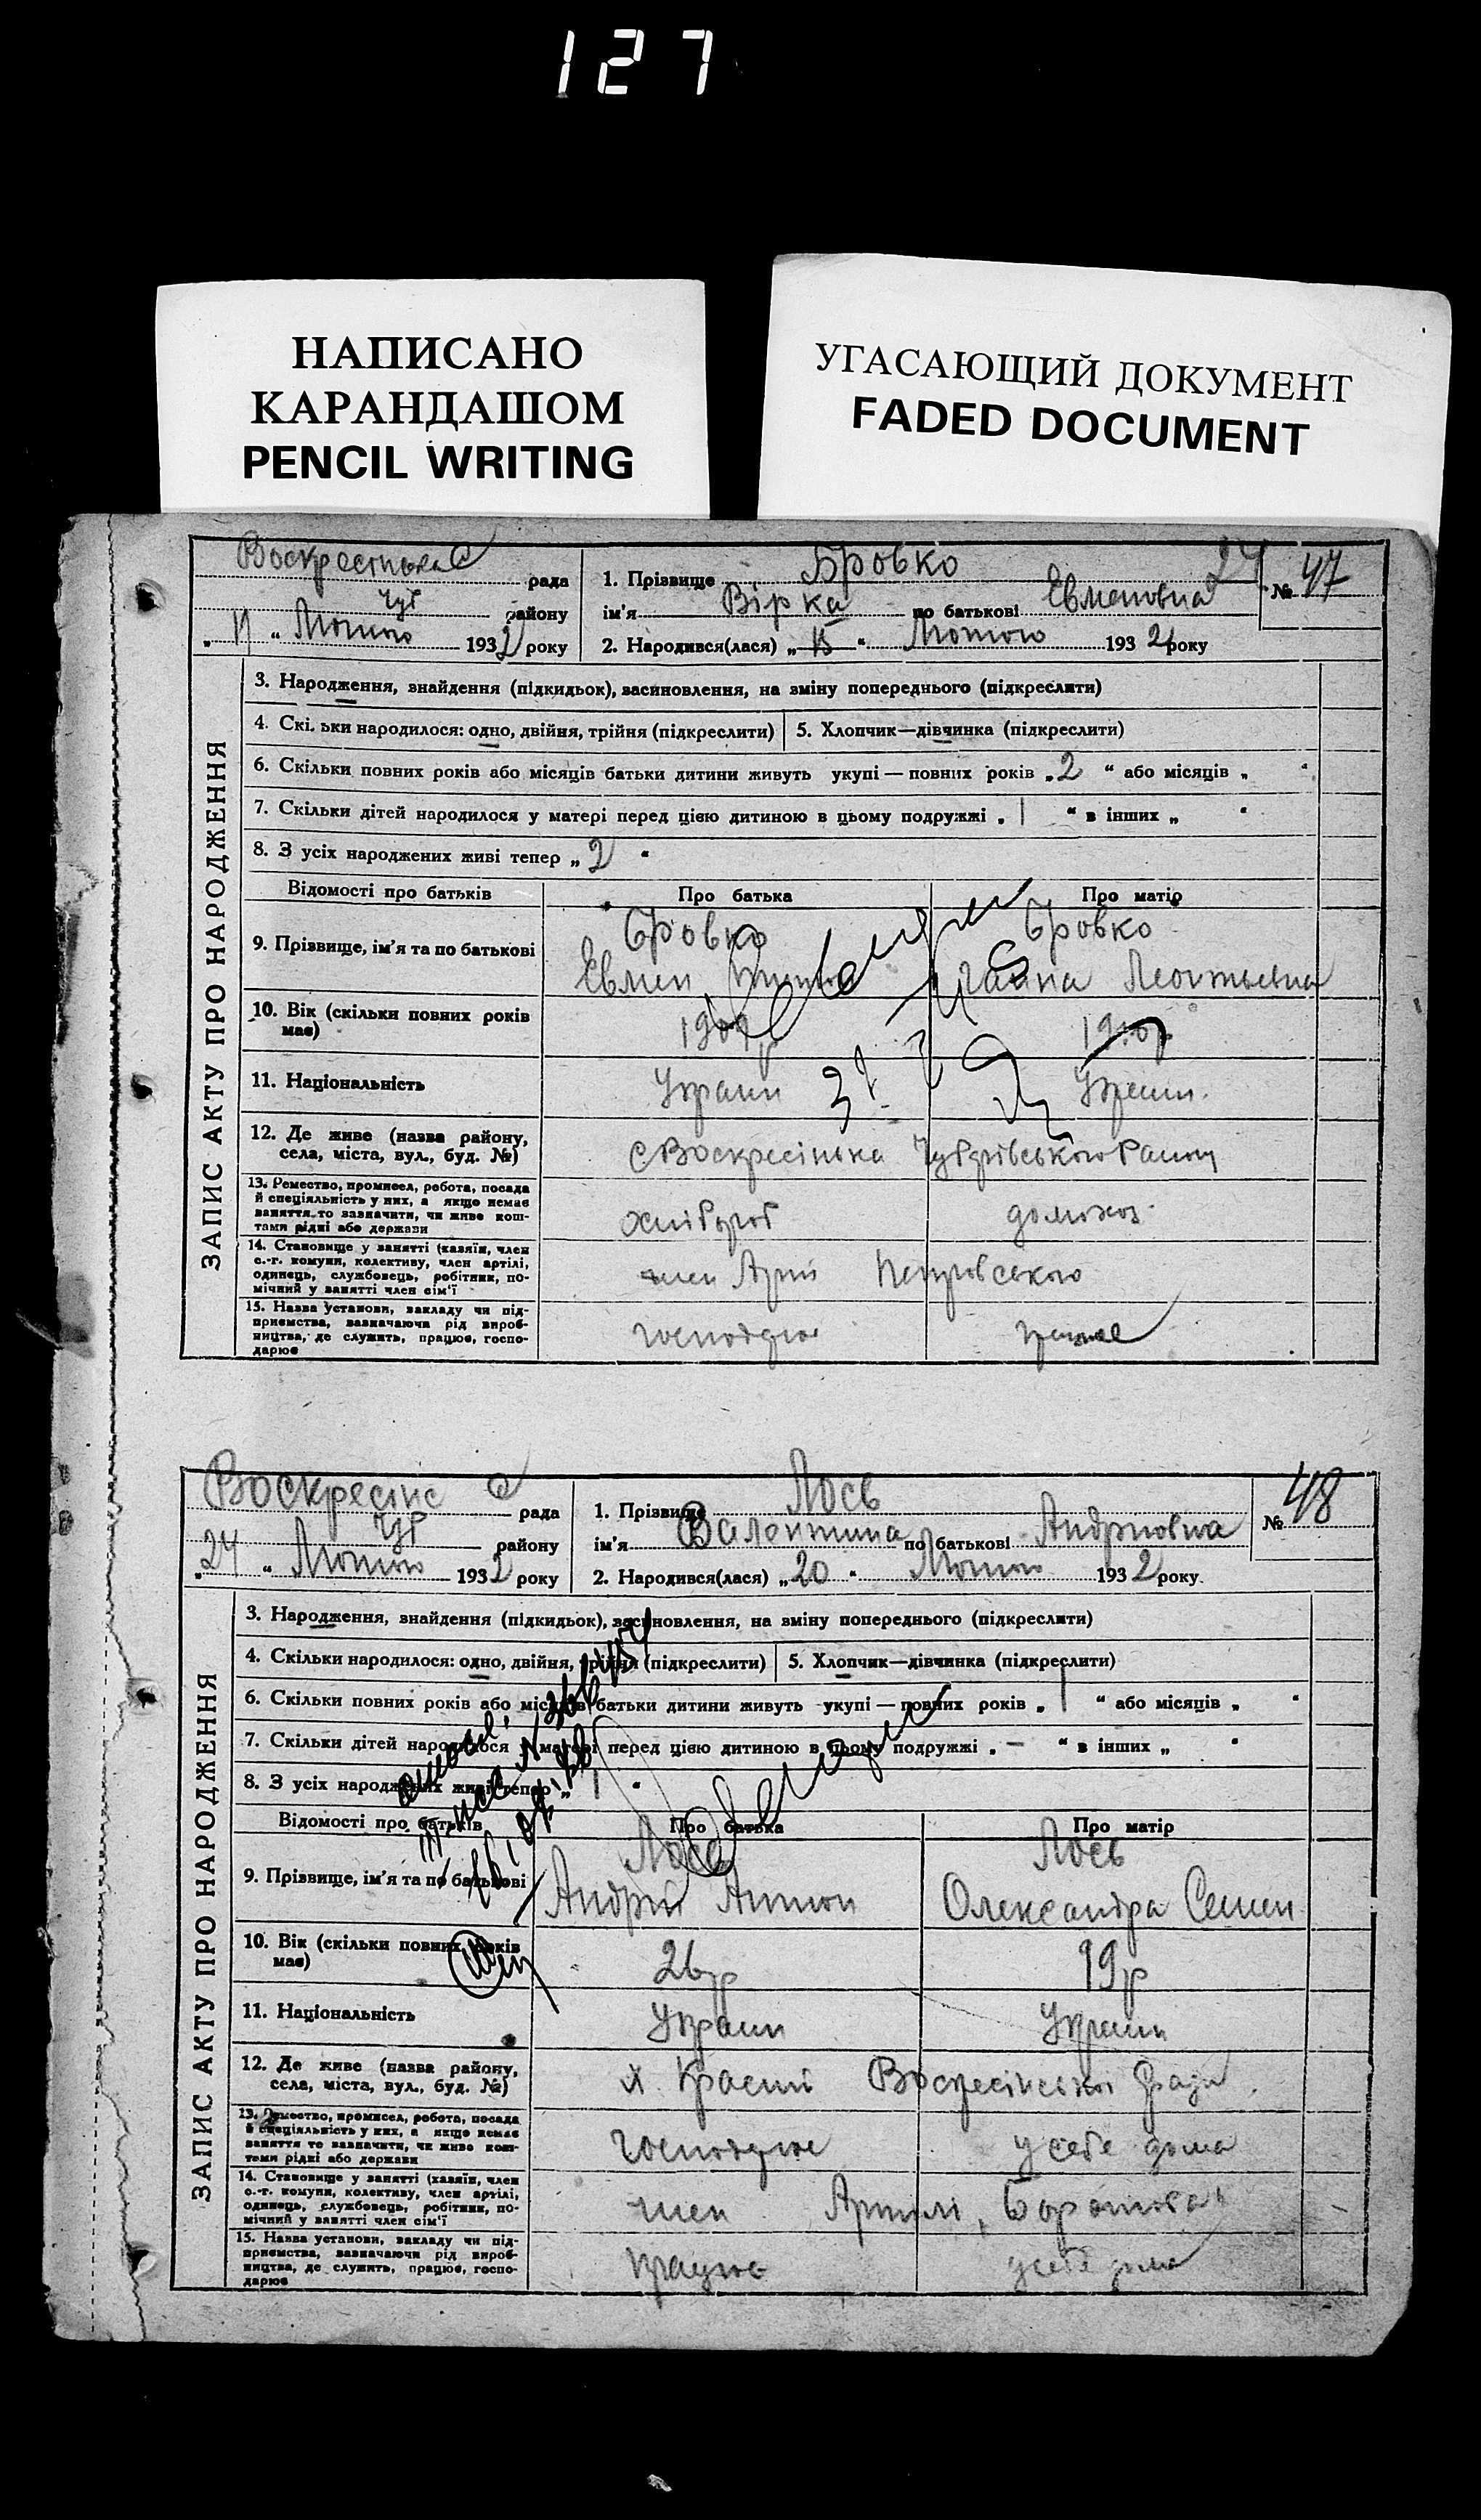 127
НАПИСАНО
КАРАНДАШОМ
PENCIL WRITING
УГАСАЮЩИЙ ДОКУМЕНТ
FADED DOCUMENT
ЗАПИС АКТУ ПРО НАРОДЖЕННЯ
рада
Чуб району
" " Лютого 1932 року
1. Прізвище Бровко
ім'я Вірка по батькові Евменовна
№ 47
2. Народився(лася) „ " Лютого 1932 року
3. Народження, знайдення (підкидьок), засиновлення, на зміну попереднього (підкреслити)
4. Скі. ьки народилося: одно, двійня, трійня (підкреслити) 5. Хлопчик—дівчинка (підкреслити)
6. Скільки повних років або місяців батьки дитини живуть укупі — повних років „ 2 " або місяців „ "
7. Скільки дітей народилося у матері перед цією дитиною в цьому подружжі „ 1 " в інших „ "
8. З усіх народжених живі тепер „ 2 "
Відомості про батьків Про батька Про матір
9. Прізвище, ім'я та по батькові Бровко Бровко
Евмен Ганна Леонтьевна
10. Вік (скільки повних років має) 1909р
11. Національність Украин Украин.
12. Де живе (назва району, села, міста, вул., буд. №) с Воскресінька
13. Ремество, промисел, робота, посада й спеціяльність у них, а якщо немає заняття то зазначити, чи живе коштами рідні або держави хлібороб домохоз.
14. Становище у занятті (хазяїн, член с.-г. комуни, колективу, член артілі, одинець, службовець, робітник, помічний у занятті член сім'ї член Петровського
15. Назва установи, закладу чи підприємства, зазначаючи рід виробництва, де служить, працює, господарює
ЗАПИС АКТУ ПРО НАРОДЖЕННЯ
Воскресінс рада
Чуб району
„ 24 " Лютого 1932 року
1. Прізвище Лось
ім'я Валентина по батькові Андріовна
№ 48
2. Народився(лася) „ 20 " Лютого 1932 року
3. Народження, знайдення (підкидьок), засиновлення, на зміну попереднього (підкреслити)
4. Скільки народилося: одно, двійня, трійня (підкреслити) 5. Хлопчик—дівчинка (підкреслити)
6. Скільки повних років або місяців батьки дитини живуть укупі — повних років „ 1 " або місяців „ "
7. Скільки дітей народилося у матері перед цією дитиною в цьому подружжі „ — " в інших „ "
8. З усіх народжених живі тепер „ 1 "
Відомості про батьків Про батька Про матір
9. Прізвище, ім'я та по батькові Лось Лось
Андрій Антон Олександра Семен
10. Вік (скільки повних років має) 26р 19р
11. Національність Украин Украин
12. Де живе (назва району, села, міста, вул., буд. №) х. Красний Воскресінської Ради
13. Ремество, промисел, робота, посада й спеціяльність у них, а якщо немає заняття то зазначити, чи живе коштами рідні або держави господрює у себе дома
14. Становище у занятті (хазяїн, член с.-г. комуни, колективу, член артілі, одинець, службовець, робітник, помічний у занятті член сім'ї член Артилі
15. Назва установи, закладу чи підприємства, зазначаючи рід виробництва, де служить, працює, господарює працює у себе дома